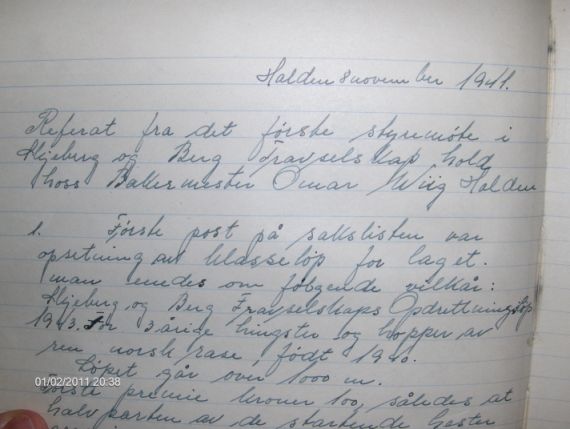 Halden 8 november 1941.
Referat fra det første styremöte i
Skjeberg og Berg Travselskap hold
hoss Bakermester Omar Wiig Halden
1. Første post på sakslisten var
opsetning av klasseløp for laget.
man enedes om følgende vilkår:
Skjeberg og Berg Travselskaps Opdretningsløp
1943. For 3 årige hingster og hopper av
ren norsk rase, født 1940.
Løpet går over 1000 m.
Første premie kroner 100, således at
halvparten av de startende hester
01/02/2011 20:38